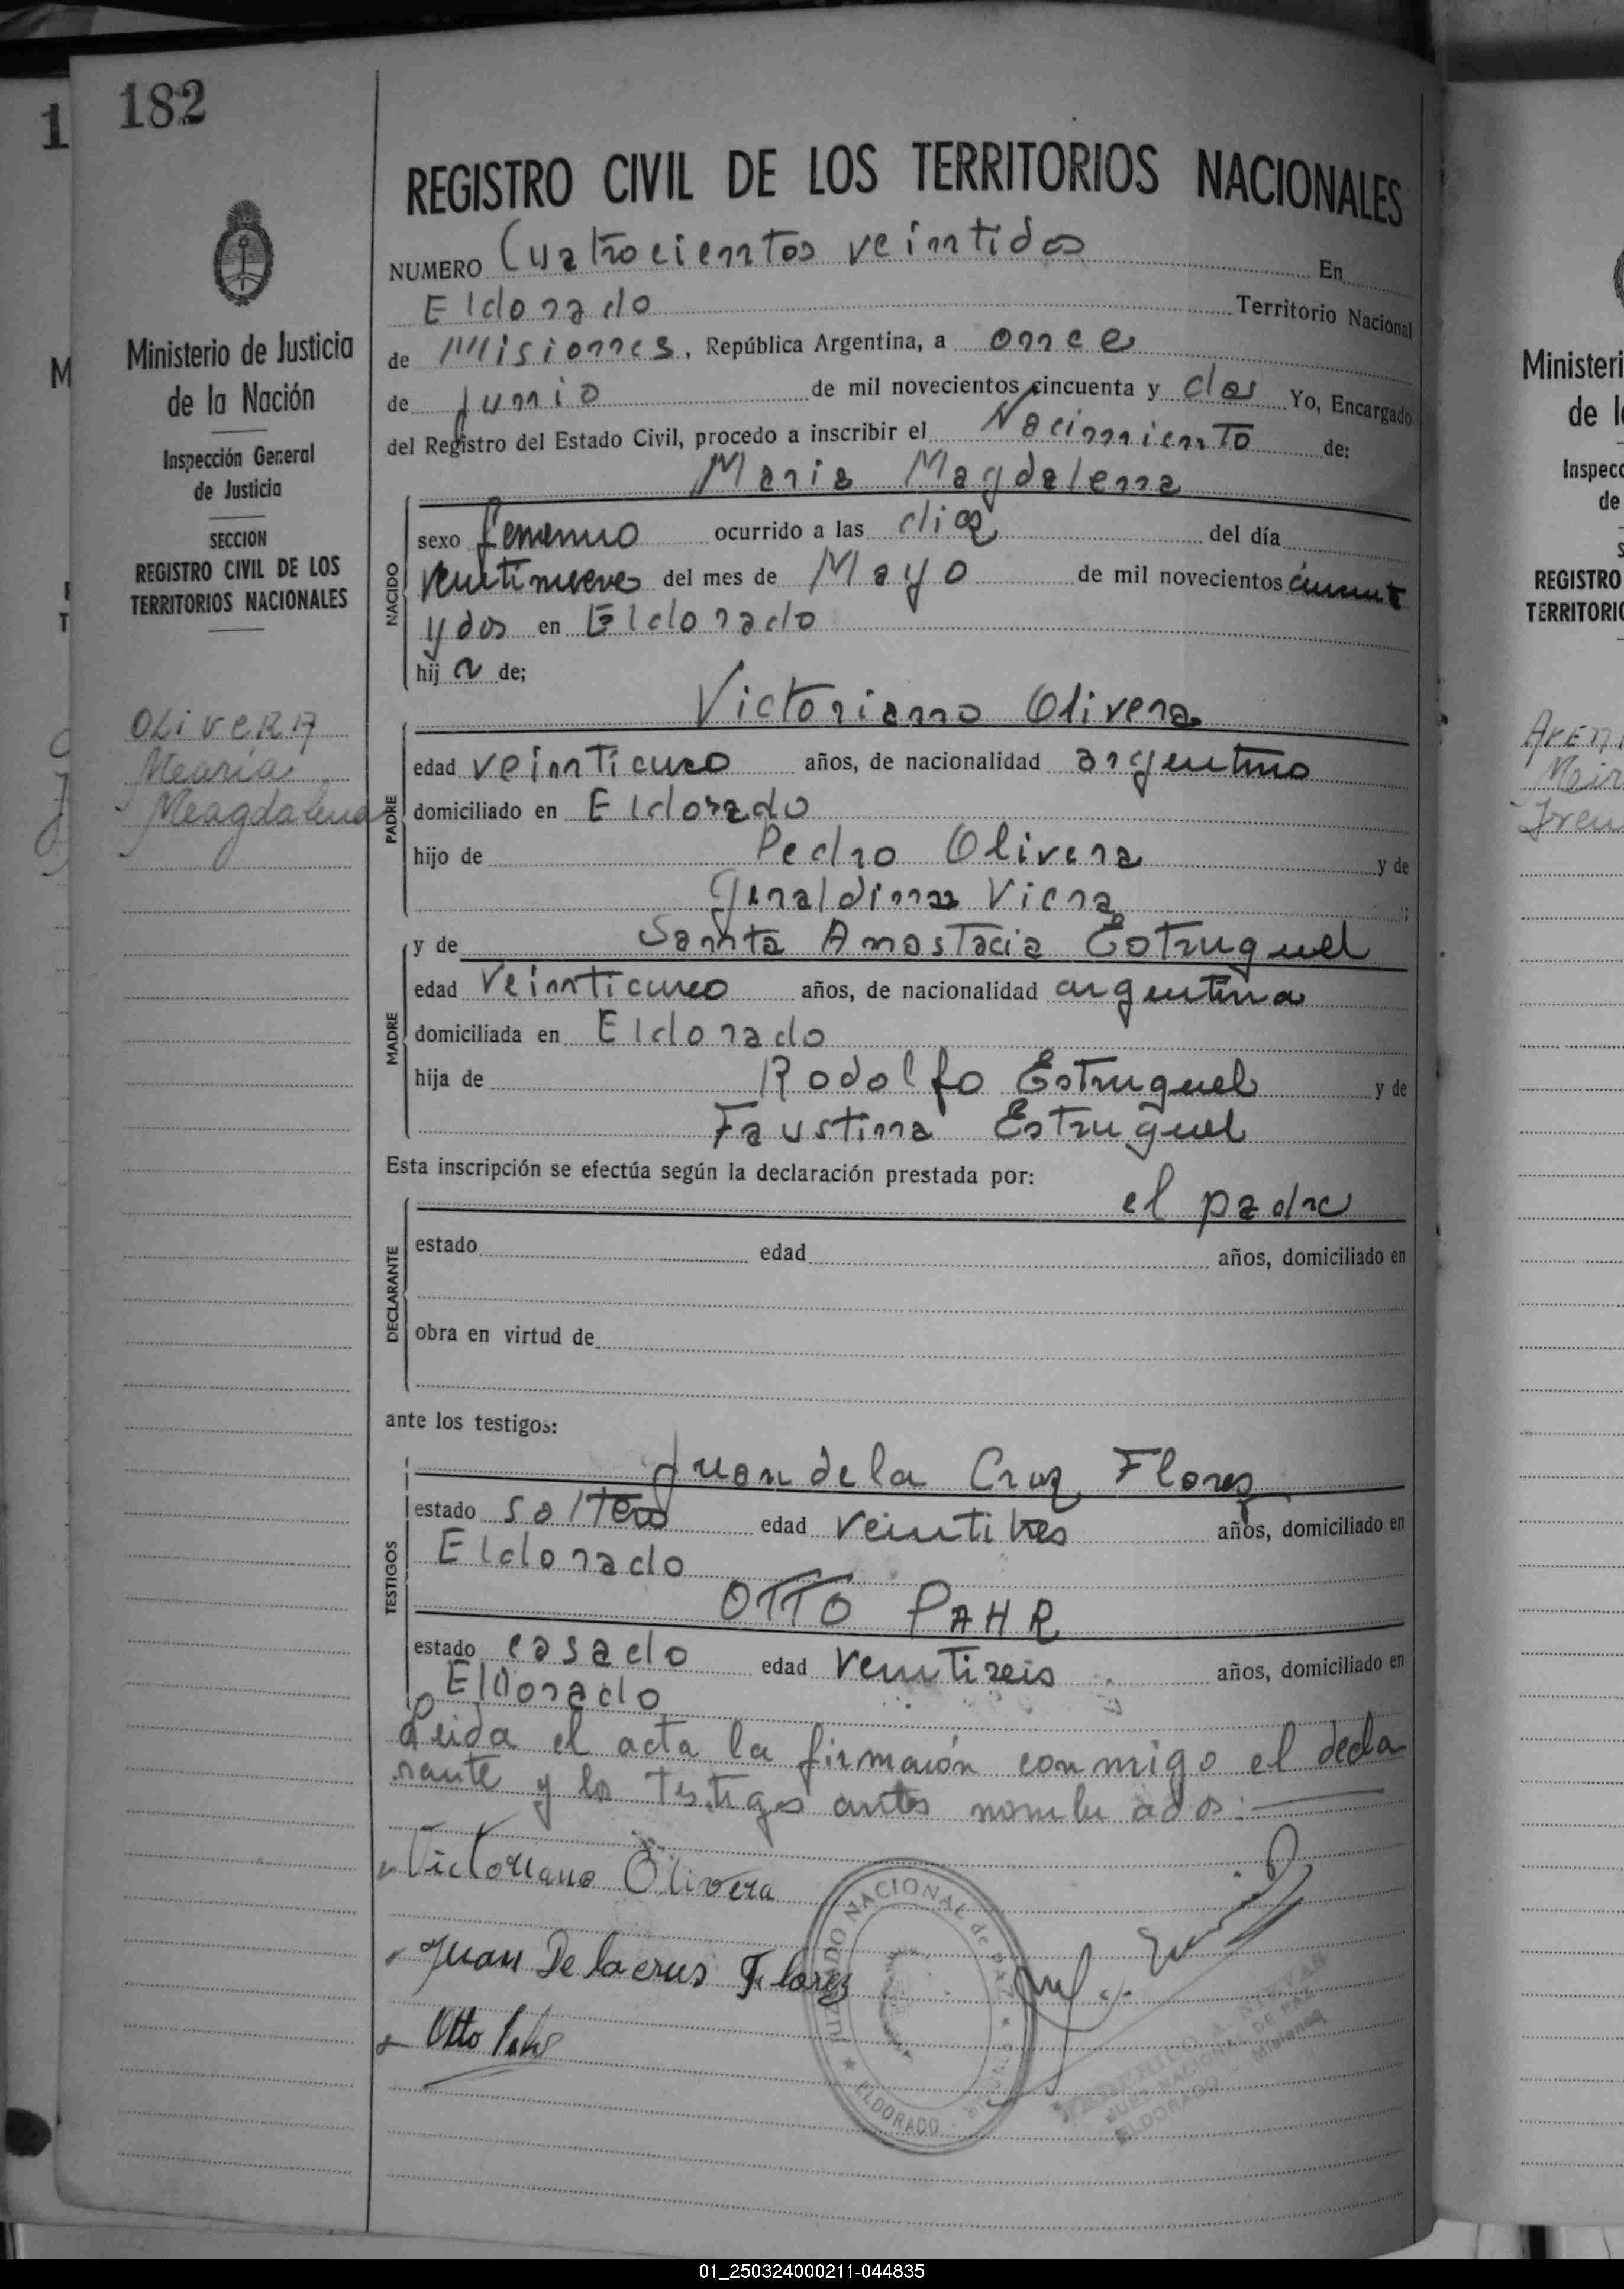 182
1
REGISTRO CIVIL DE LOS TERRITORIOS NACIONALES
NUMERO Cuatrocientos veintidos En
Eldorado Territorio Nacional
de Misiones, República Argentina, a once
de Junio de mil novecientos cincuenta y dos Yo, Encargado
del Registro del Estado Civil, procedo a inscribir el Nacimiento de:
Maria Magdalena
NACIDO
sexo femenino ocurrido a las diez del día
veintinueve del mes de Mayo de mil novecientos
y dos en Eldorado
hij a de;
Victoriano Olivera
PADRE
edad veinticinco años, de nacionalidad argentino
domiciliado en Eldorado
hijo de Pedro Olivera y de
Geraldina Viera
MADRE
y de Santa Anastacia Estruguel
edad veinticinco años, de nacionalidad argentina
domiciliada en Eldorado
hija de Rodolfo Estruguel y de
Faustina Estruguel
Esta inscripción se efectúa según la declaración prestada por:
el padre
DECLARANTE
estado edad años, domiciliado en
obra en virtud de
ante los testigos:
Juan de la Cruz Florez
TESTIGOS
estado soltero edad veintitres años, domiciliado en
Eldorado
OTTO PAHR
estado casado edad veintiseis años, domiciliado en
Eldorado
Leida el acta la firmaron conmigo el decla
rante y los testigos antes nombrados:
Victoriano Olivera
Juan De lacrus Florez
Otto
JUZGADO NACIONAL de PAZ
ELDORADO
JUEZ NACIONAL DE PAZ
ELDORADO - Misiones
Ministerio de Justicia
de la Nación
Inspección General
de Justicia
SECCION
REGISTRO CIVIL DE LOS
TERRITORIOS NACIONALES
OLIVERA
Maria
Magdalena
M
T
Ministeri
de l
Inspecc
de
S
REGISTRO
TERRITORIO
01_250324000211-044835